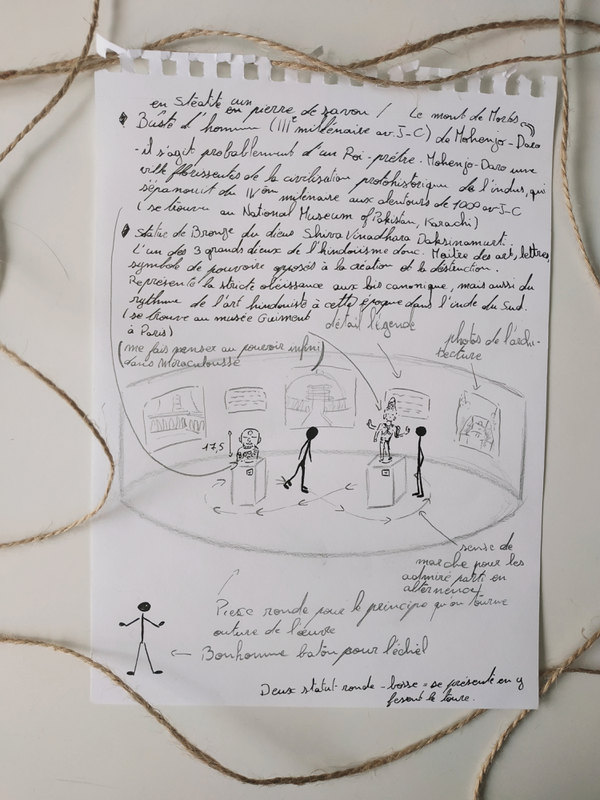 en stéatite ou en pierre de savon / Le mont de Morts
Buste d'homme (IIIe millénaire av J-C) de Mohenjo-Daro
- il s'agit probablement d'un Roi-prêtre. Mohenjo-Daro une
ville florissante de la civilisation protohistorique de l'indus, qui
s'épanouit du IV ème millenaire aux alentours de 1000 av J-C
(se trouve au National Museum of Pakistan, Karachi)
Statue de Bronze du dieu Shiva Vinadhara Daksinamurti.
L'un des 3 grands dieux de l'hindouisme donc. Maître des art, lettres,
symbole de pouvoirs opposés à la création et la destruction.
Représente la stricte obéissance aux lois canonique, mais aussi du
rythme de l'art hindouiste à cette époque dans l'inde du Sud.
(se trouve au musée Guimont
à Paris)
détail légende
photos de l'archi-
tecture
(me fais penser au pouvoir infini)
dans Miraculousse
17,5
sense de
marche pour les
admiré parti en
alternence
Piece ronde pour le principe qu'on tourne
outure de l'œuvre
Bonhomme baton pour l'échèl
Deux statut ronde-bosse = se présente en y
fesant le toure.